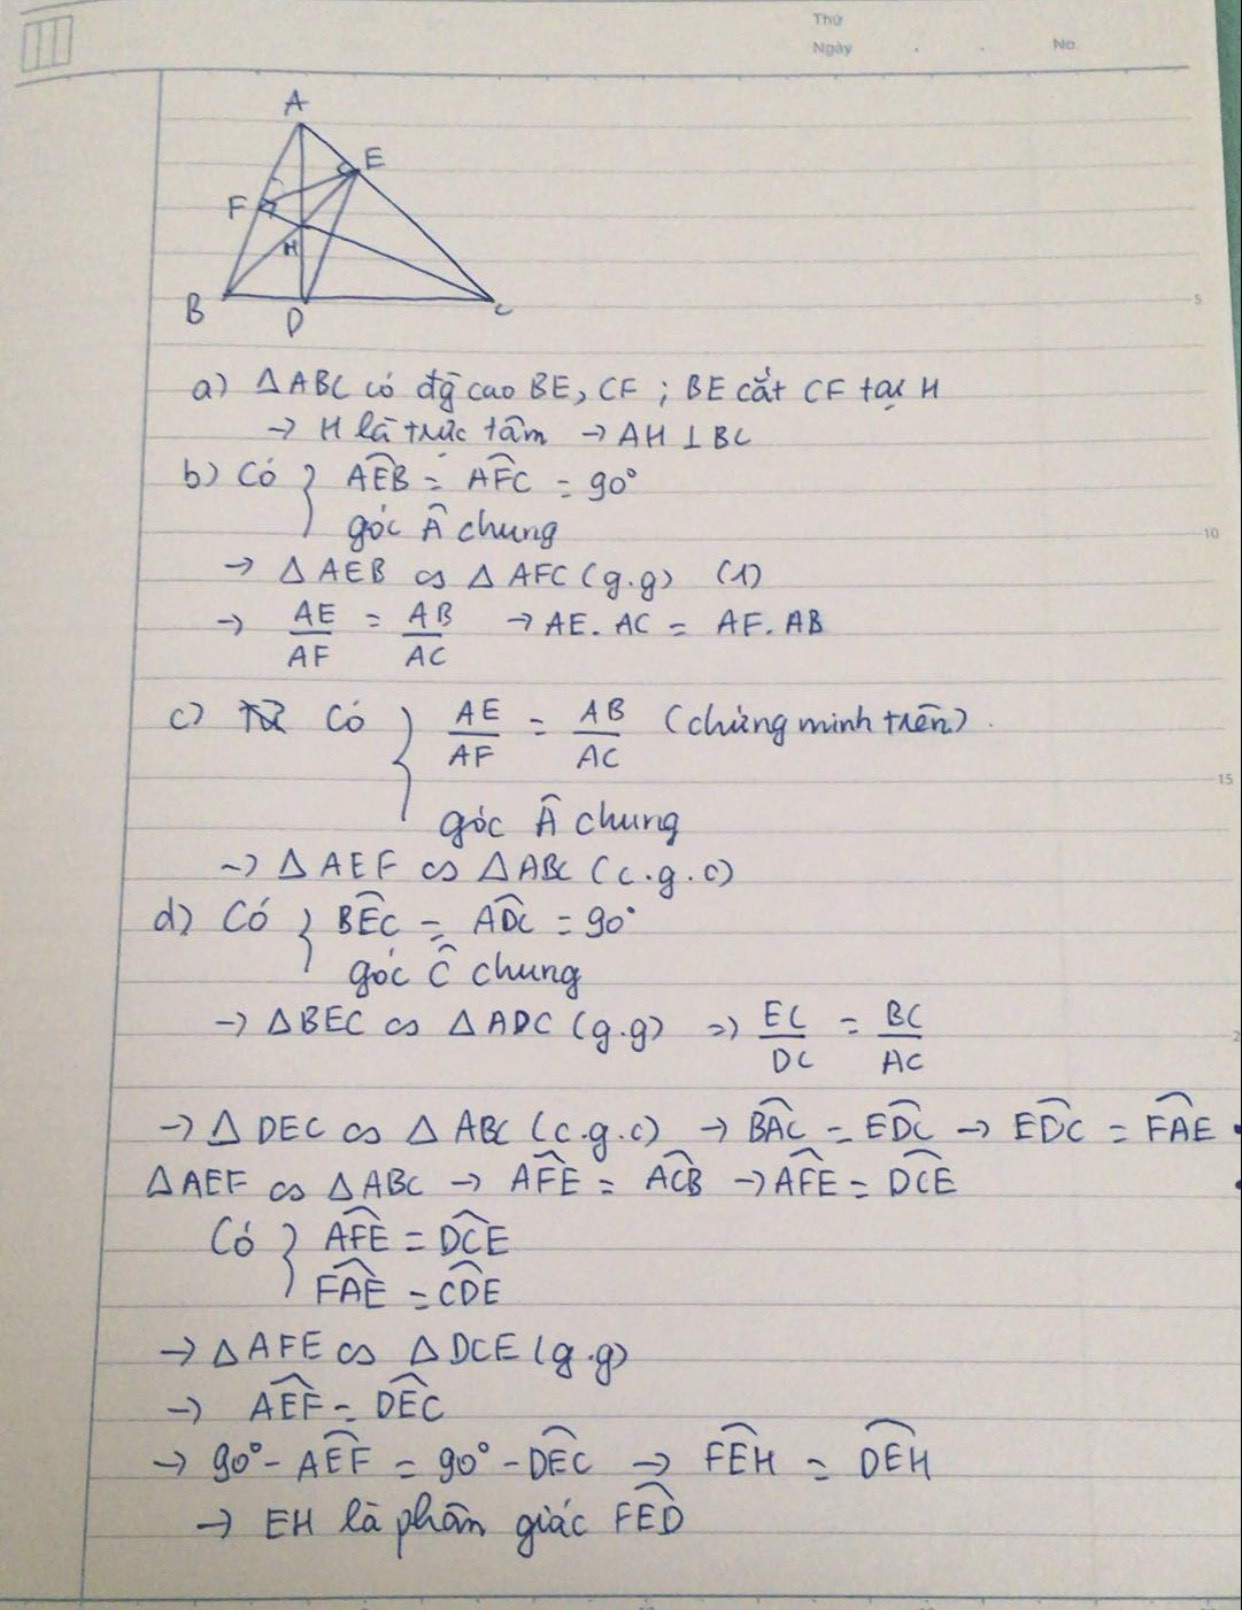 Thứ
Ngày . . No.
A
E
F
H
B D C
5
a) △ABC có đg cao BE, CF ; BE cắt CF tại H
→ H là trực tâm → AH ⊥ BC
b) Có { \widehat{AEB} = \widehat{AFC} = 90°
góc Â chung
10
→ △AEB ∽ △AFC (g.g) (1)
→ AE/AF = AB/AC → AE.AC = AF.AB
c) Có { AE/AF = AB/AC (chứng minh trên).
15
góc Â chung
→ △AEF ∽ △ABC (c.g.c)
d) Có { \widehat{BEC} = \widehat{ADC} = 90°
góc Ĉ chung
→ △BEC ∽ △ADC (g.g) => EC/DC = BC/AC
→ △DEC ∽ △ABC (c.g.c) → \widehat{BAC} = \widehat{EDC} → \widehat{EDC} = \widehat{FAE}
△AEF ∽ △ABC → \widehat{AFE} = \widehat{ACB} → \widehat{AFE} = \widehat{DCE}
Có { \widehat{AFE} = \widehat{DCE}
\widehat{FAE} = \widehat{CDE}
→ △AFE ∽ △DCE (g.g)
→ \widehat{AEF} = \widehat{DEC}
→ 90° - \widehat{AEF} = 90° - \widehat{DEC} → \widehat{FEH} = \widehat{DEH}
→ EH là phân giác \widehat{FED}